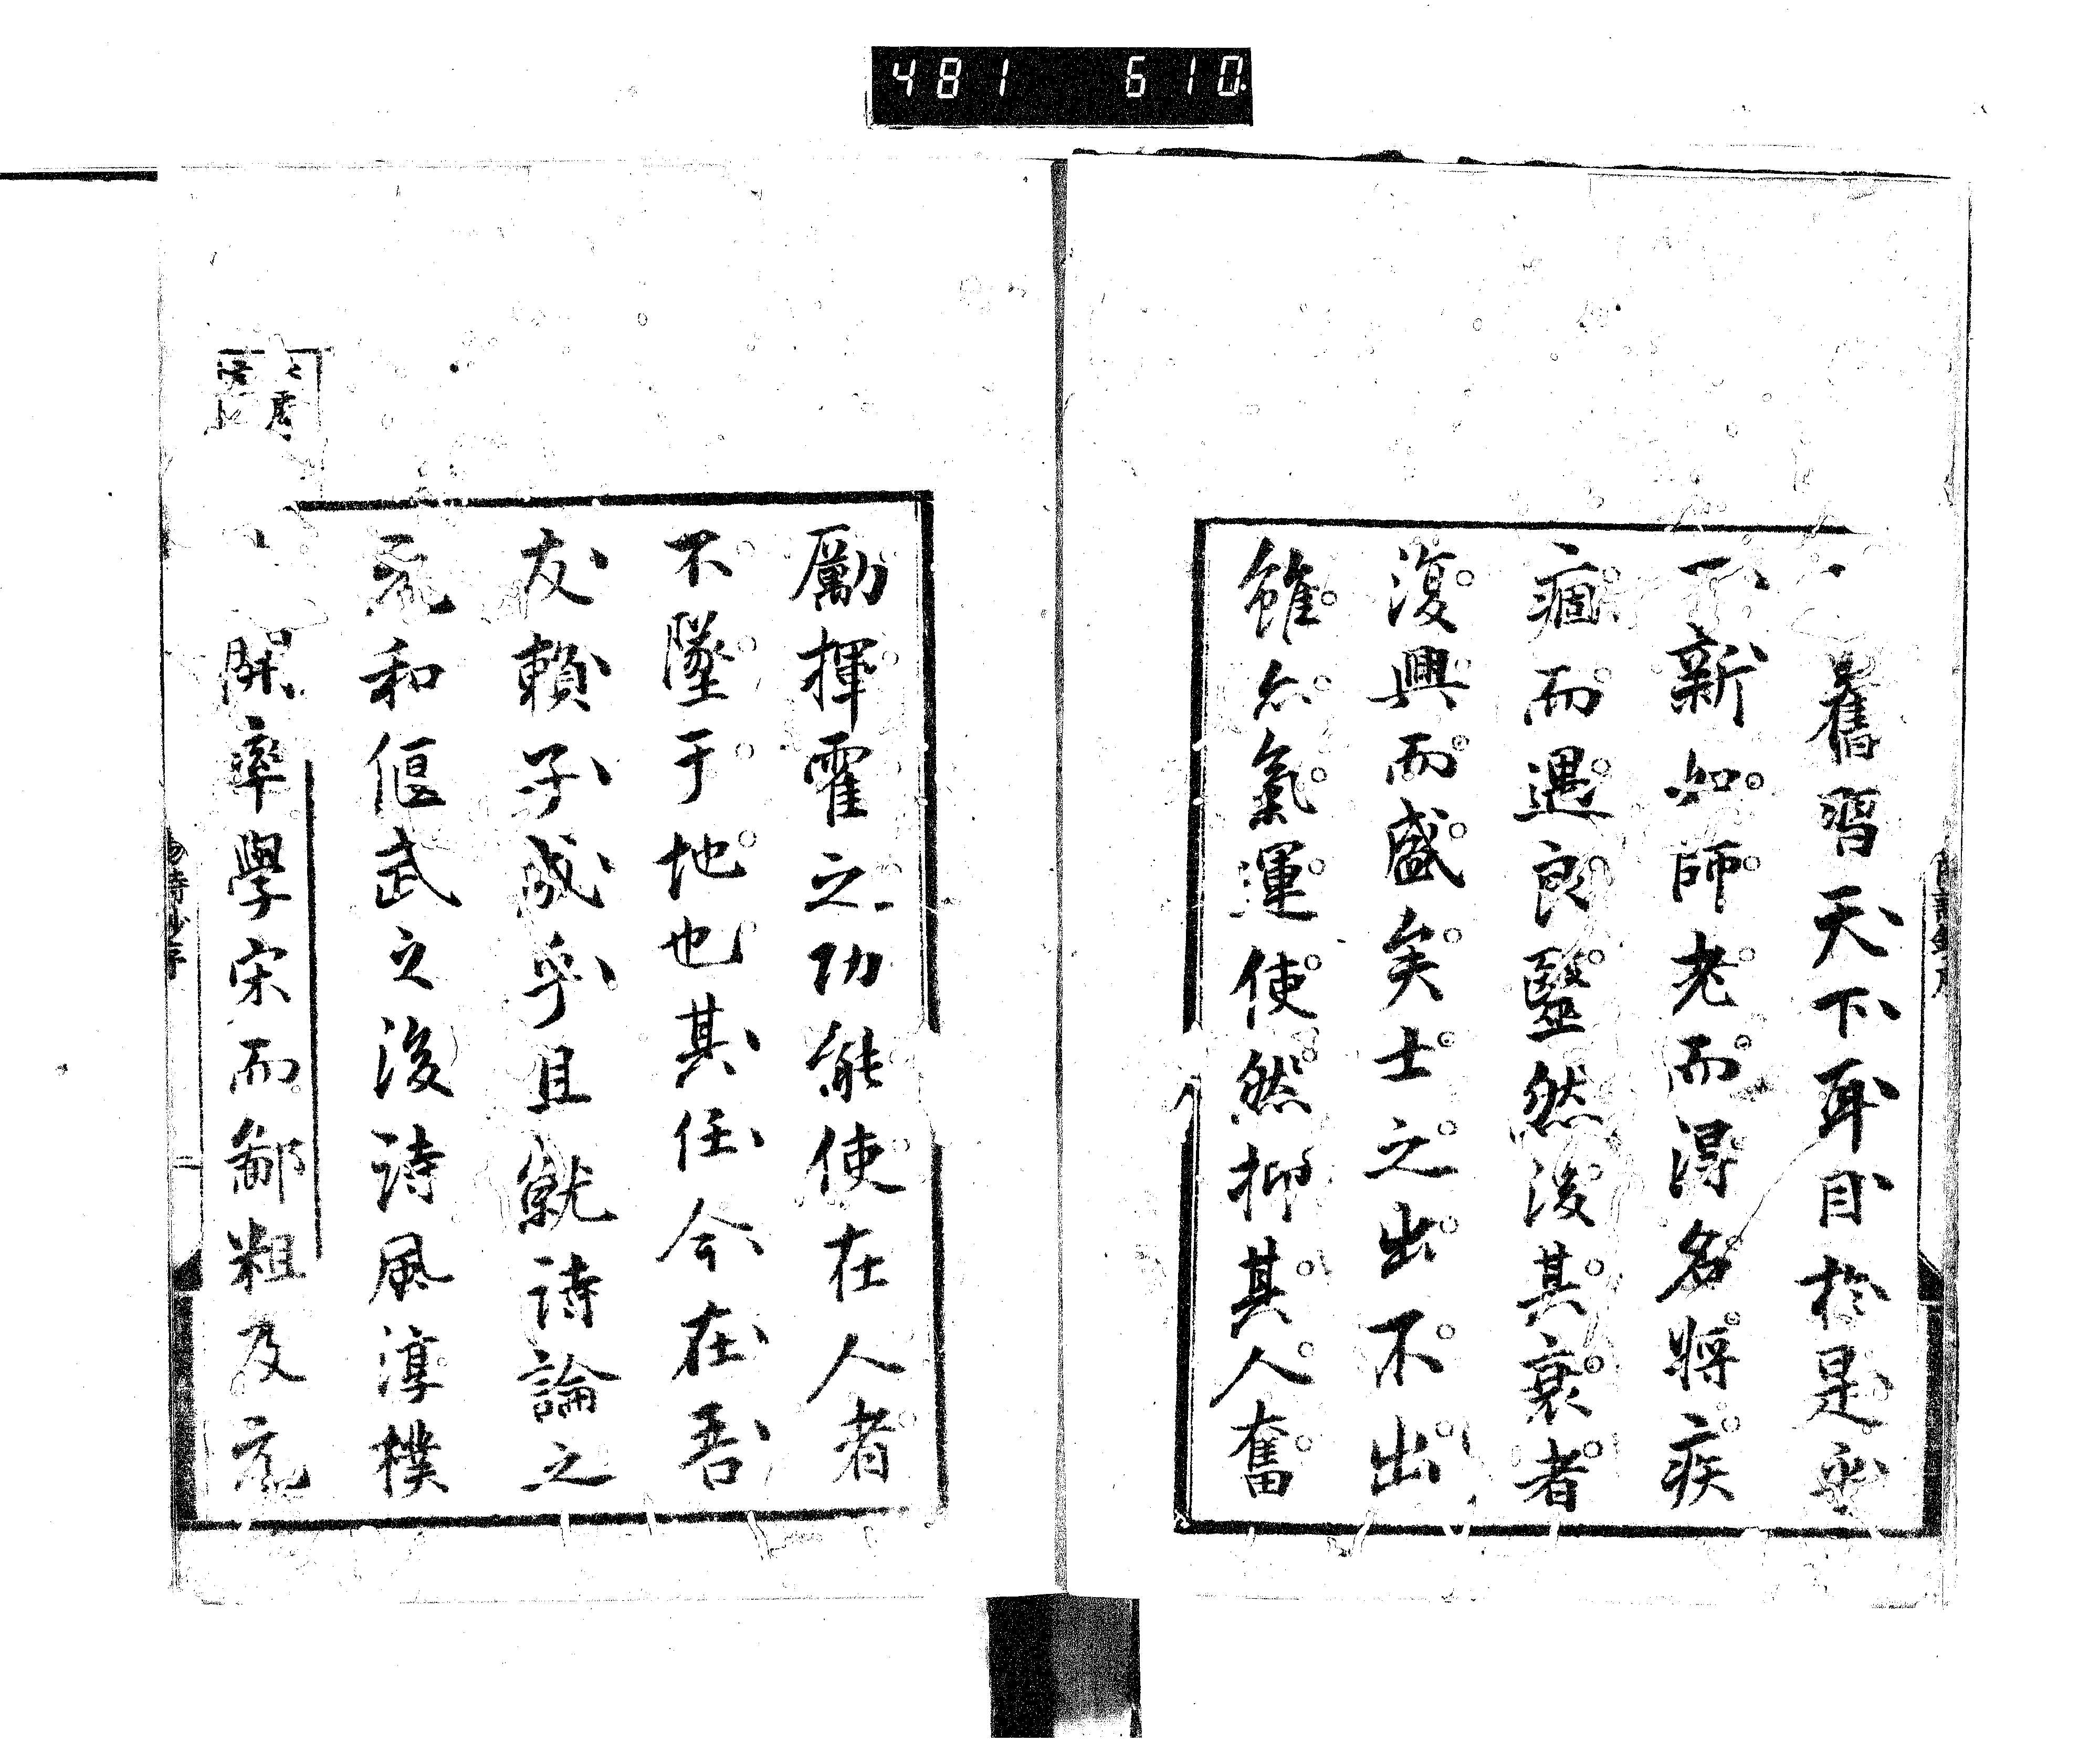 481 610
舊習天下耳目於是乎
一新如師老而得名將疾
痼而遇良毉然後其衰者
復興而盛矣士之出不出
雖亦氣運使然抑其人奮
勵揮霍之功能使在人者
不墜于地也其任今在吾
友賴子成乎且就詩論之
元和偃武之後詩風淳樸
開率學宋而鄙粗及元